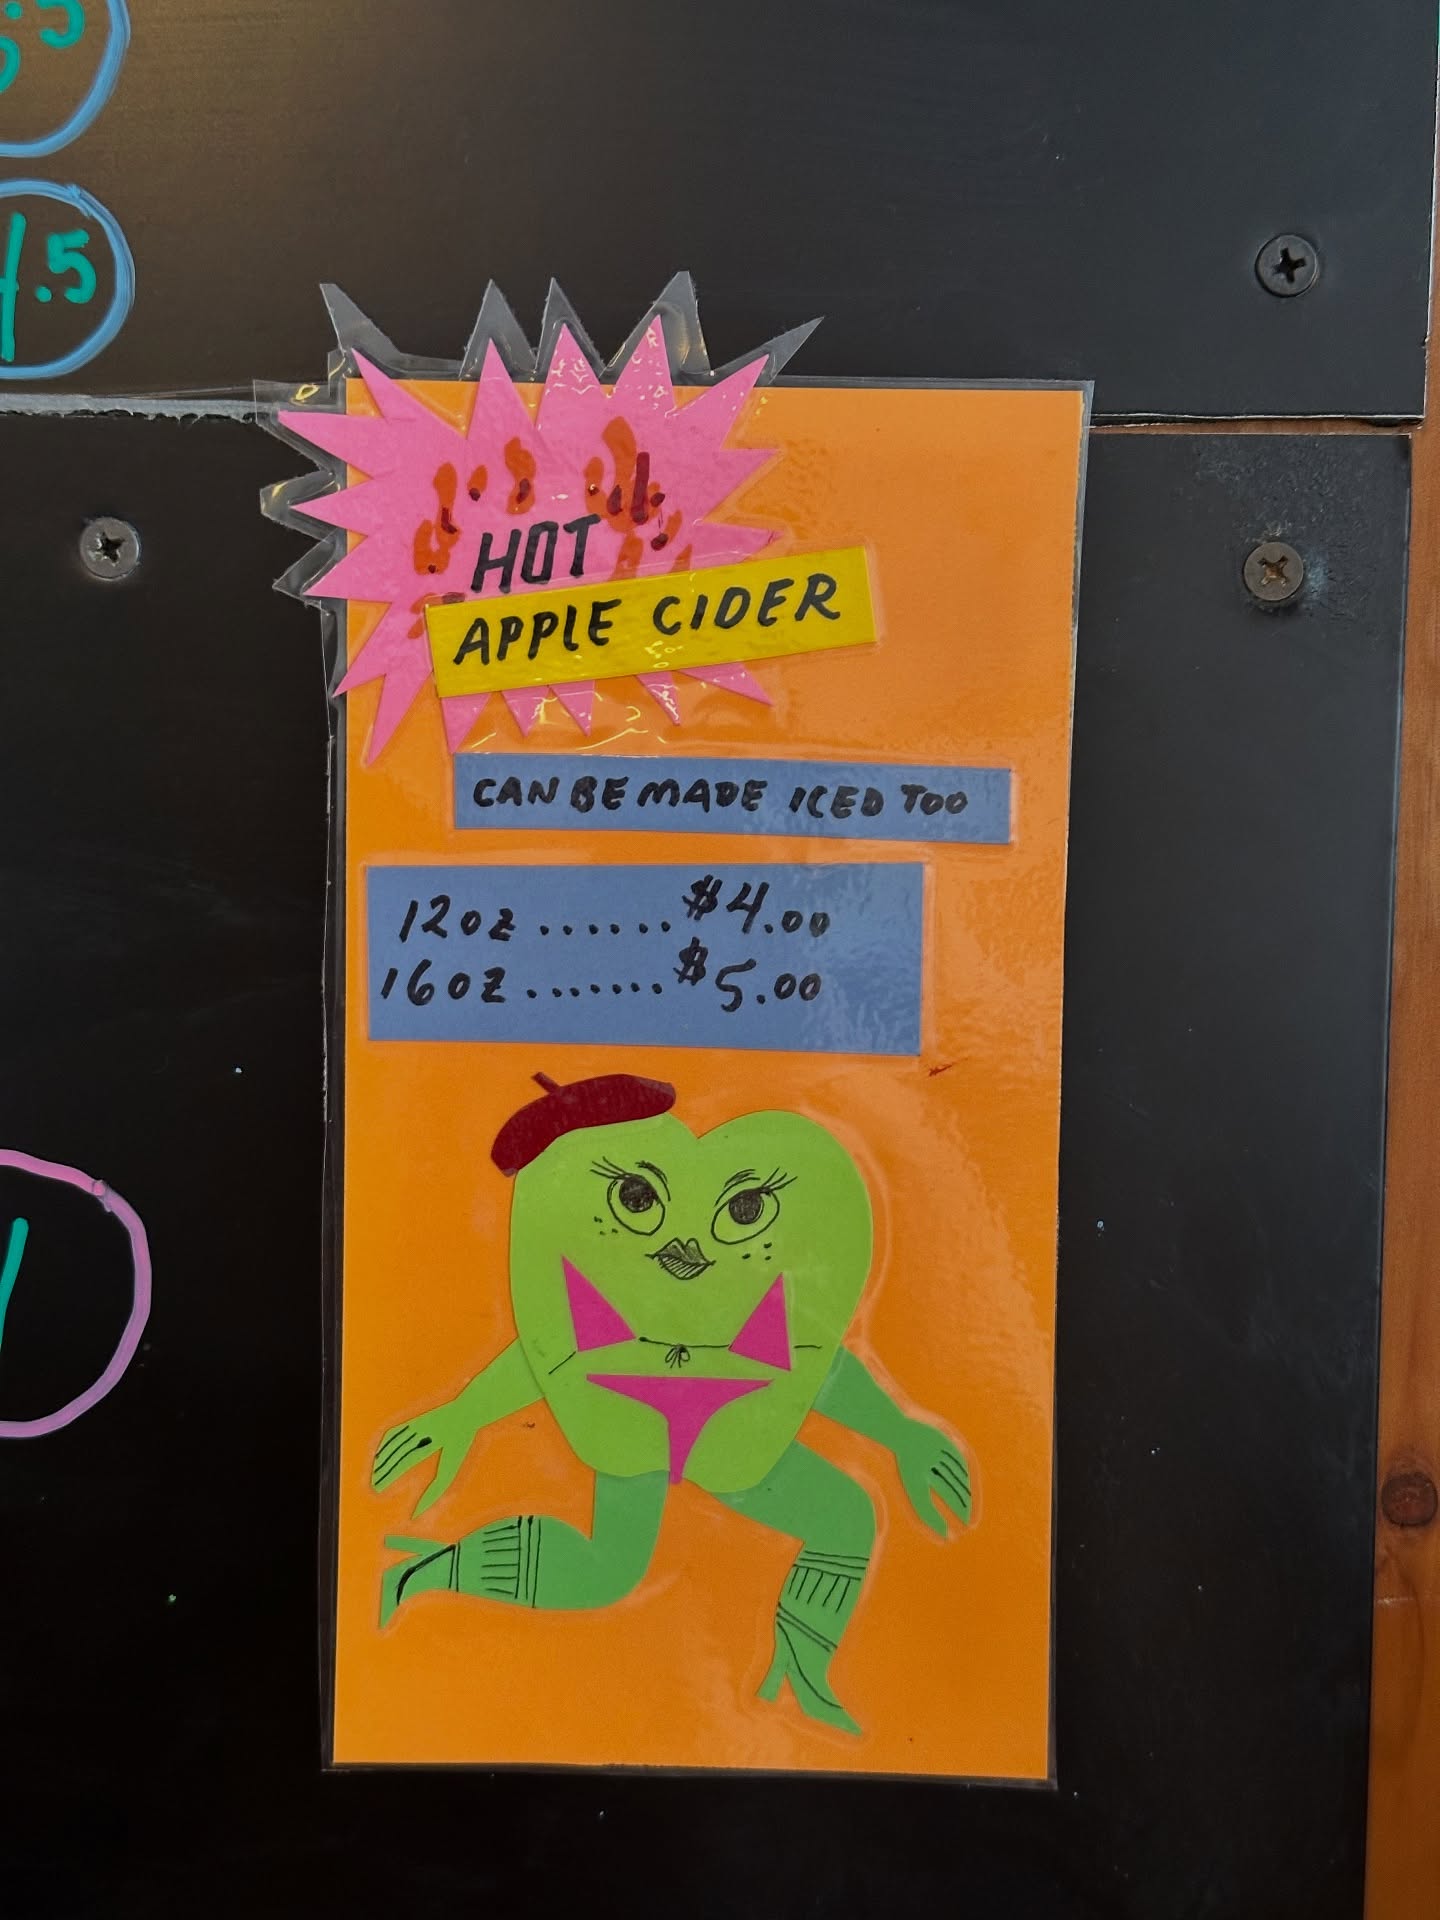 .5
.5
HOT
APPLE CIDER
CAN BE MADE ICED TOO
12oz ...... $4.00
16oz ....... $5.00